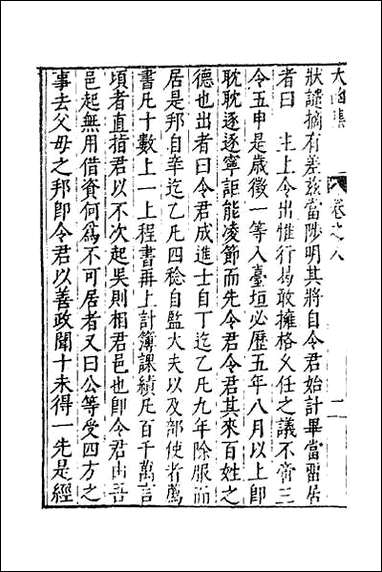 大函集
卷之八
二
狀讉摘有差茲當陟明其將自令君始計畢當畱居
者曰 主上令出惟行曷敢擁格久任之議不啻三
令五申是歲徵一等入臺垣必歷五年八月以上卽
耽耽逐逐寧詎能凌節而先令君令君其來百姓之
德也出者曰令君成進士自丁迄乙凡九年除服而
居是邦自辛迄乙凡四稔自監大夫以及部使者薦
書凡十數上一上程書再上計簿課績凡百千萬言
頃者直指君以不次起吳則相君邑也卽令君由吾
邑起無用借資何爲不可居者又曰公等受四方之
事去父母之邦卽令君以善政聞十未得一先是經